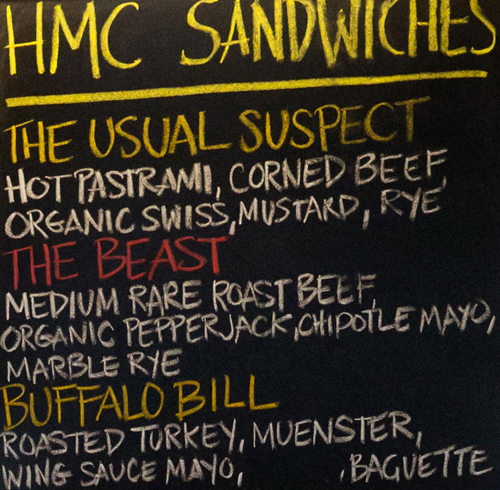 HMC SANDWICHES
THE USUAL SUSPECT
HOT PASTRAMI, CORNED BEEF,
ORGANIC SWISS, MUSTARD, RYE
THE BEAST
MEDIUM RARE ROAST BEEF,
ORGANIC PEPPERJACK, CHIPOTLE MAYO,
MARBLE RYE
BUFFALO BILL
ROASTED TURKEY, MUENSTER,
WING SAUCE MAYO, , BAGUETTE